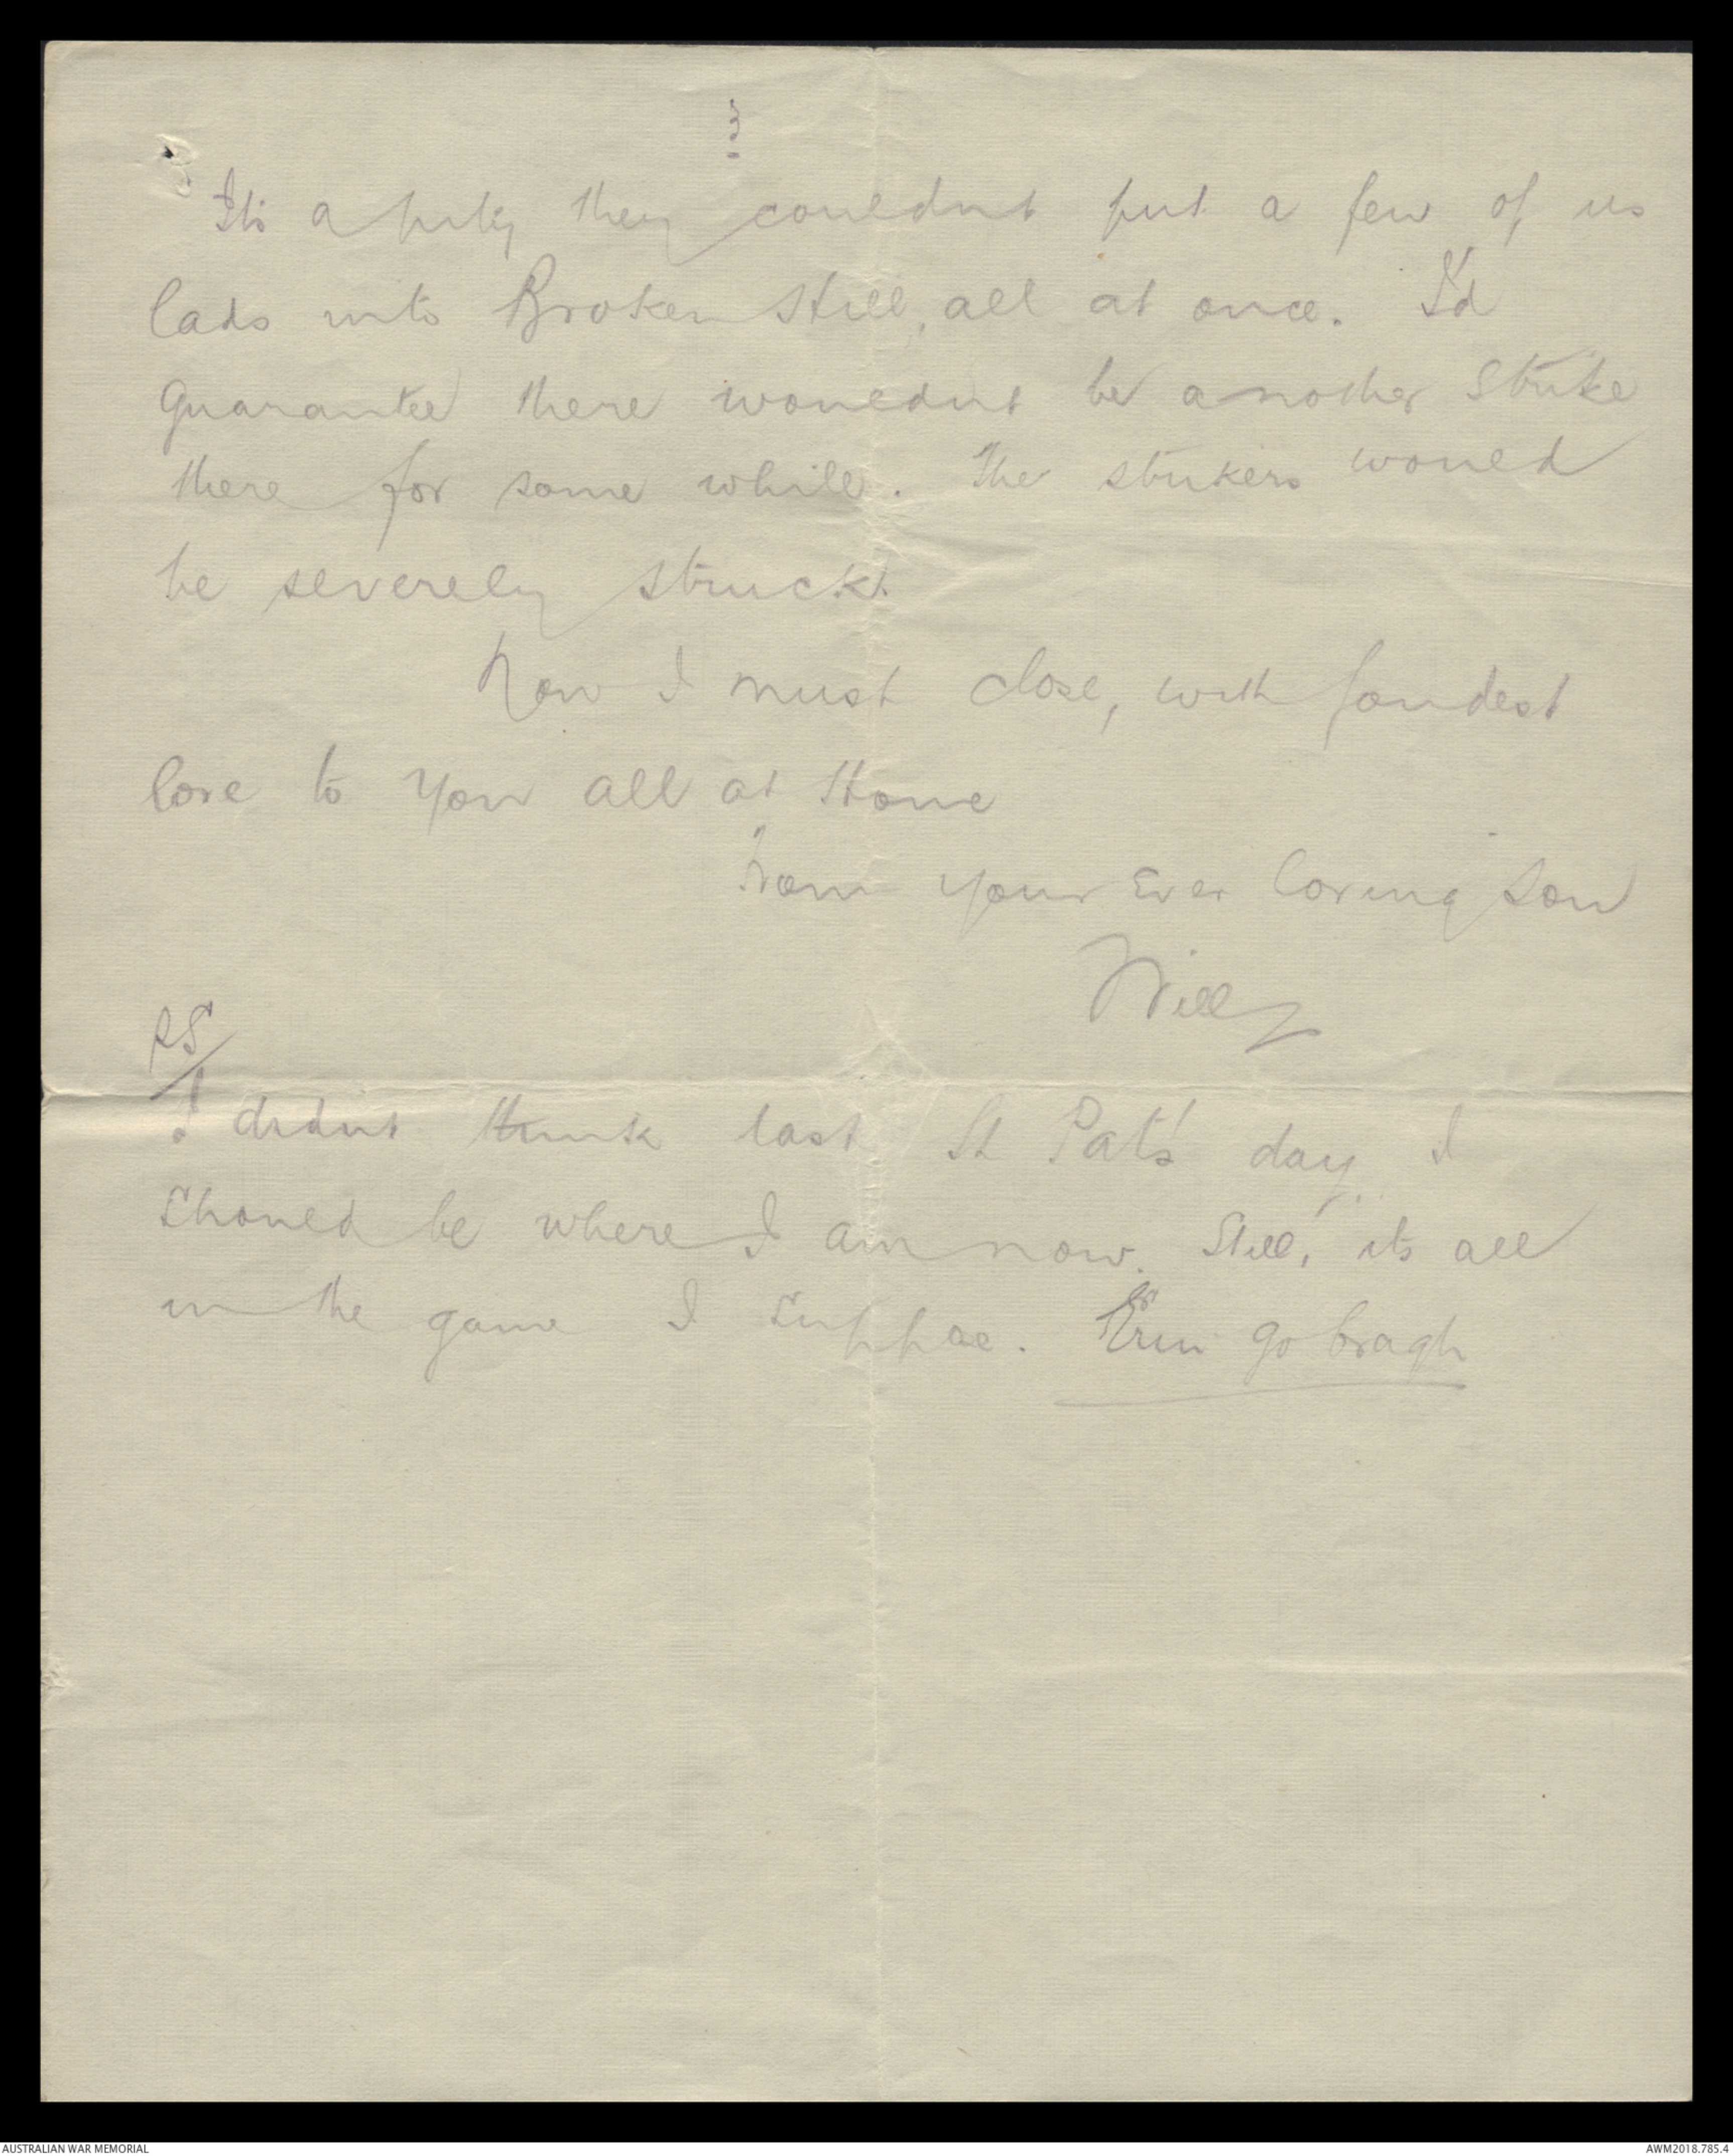 3
It's a pity they couldnt put a few of us
lads into Broken Hill, all at once. I'd
Guarantee there wouldnt be another Strike
there for some while. The strikers would
be severely struck.
Now I must close, with fondest
love to You all at Home
From your Ever loving Son
Willy
PS/
I didnt think last St Pat's day I
Should be where I am now. Still, its all
in the game I suppose. Erin go bragh
AUSTRALIAN WAR MEMORIAL
AWM2018.785.4